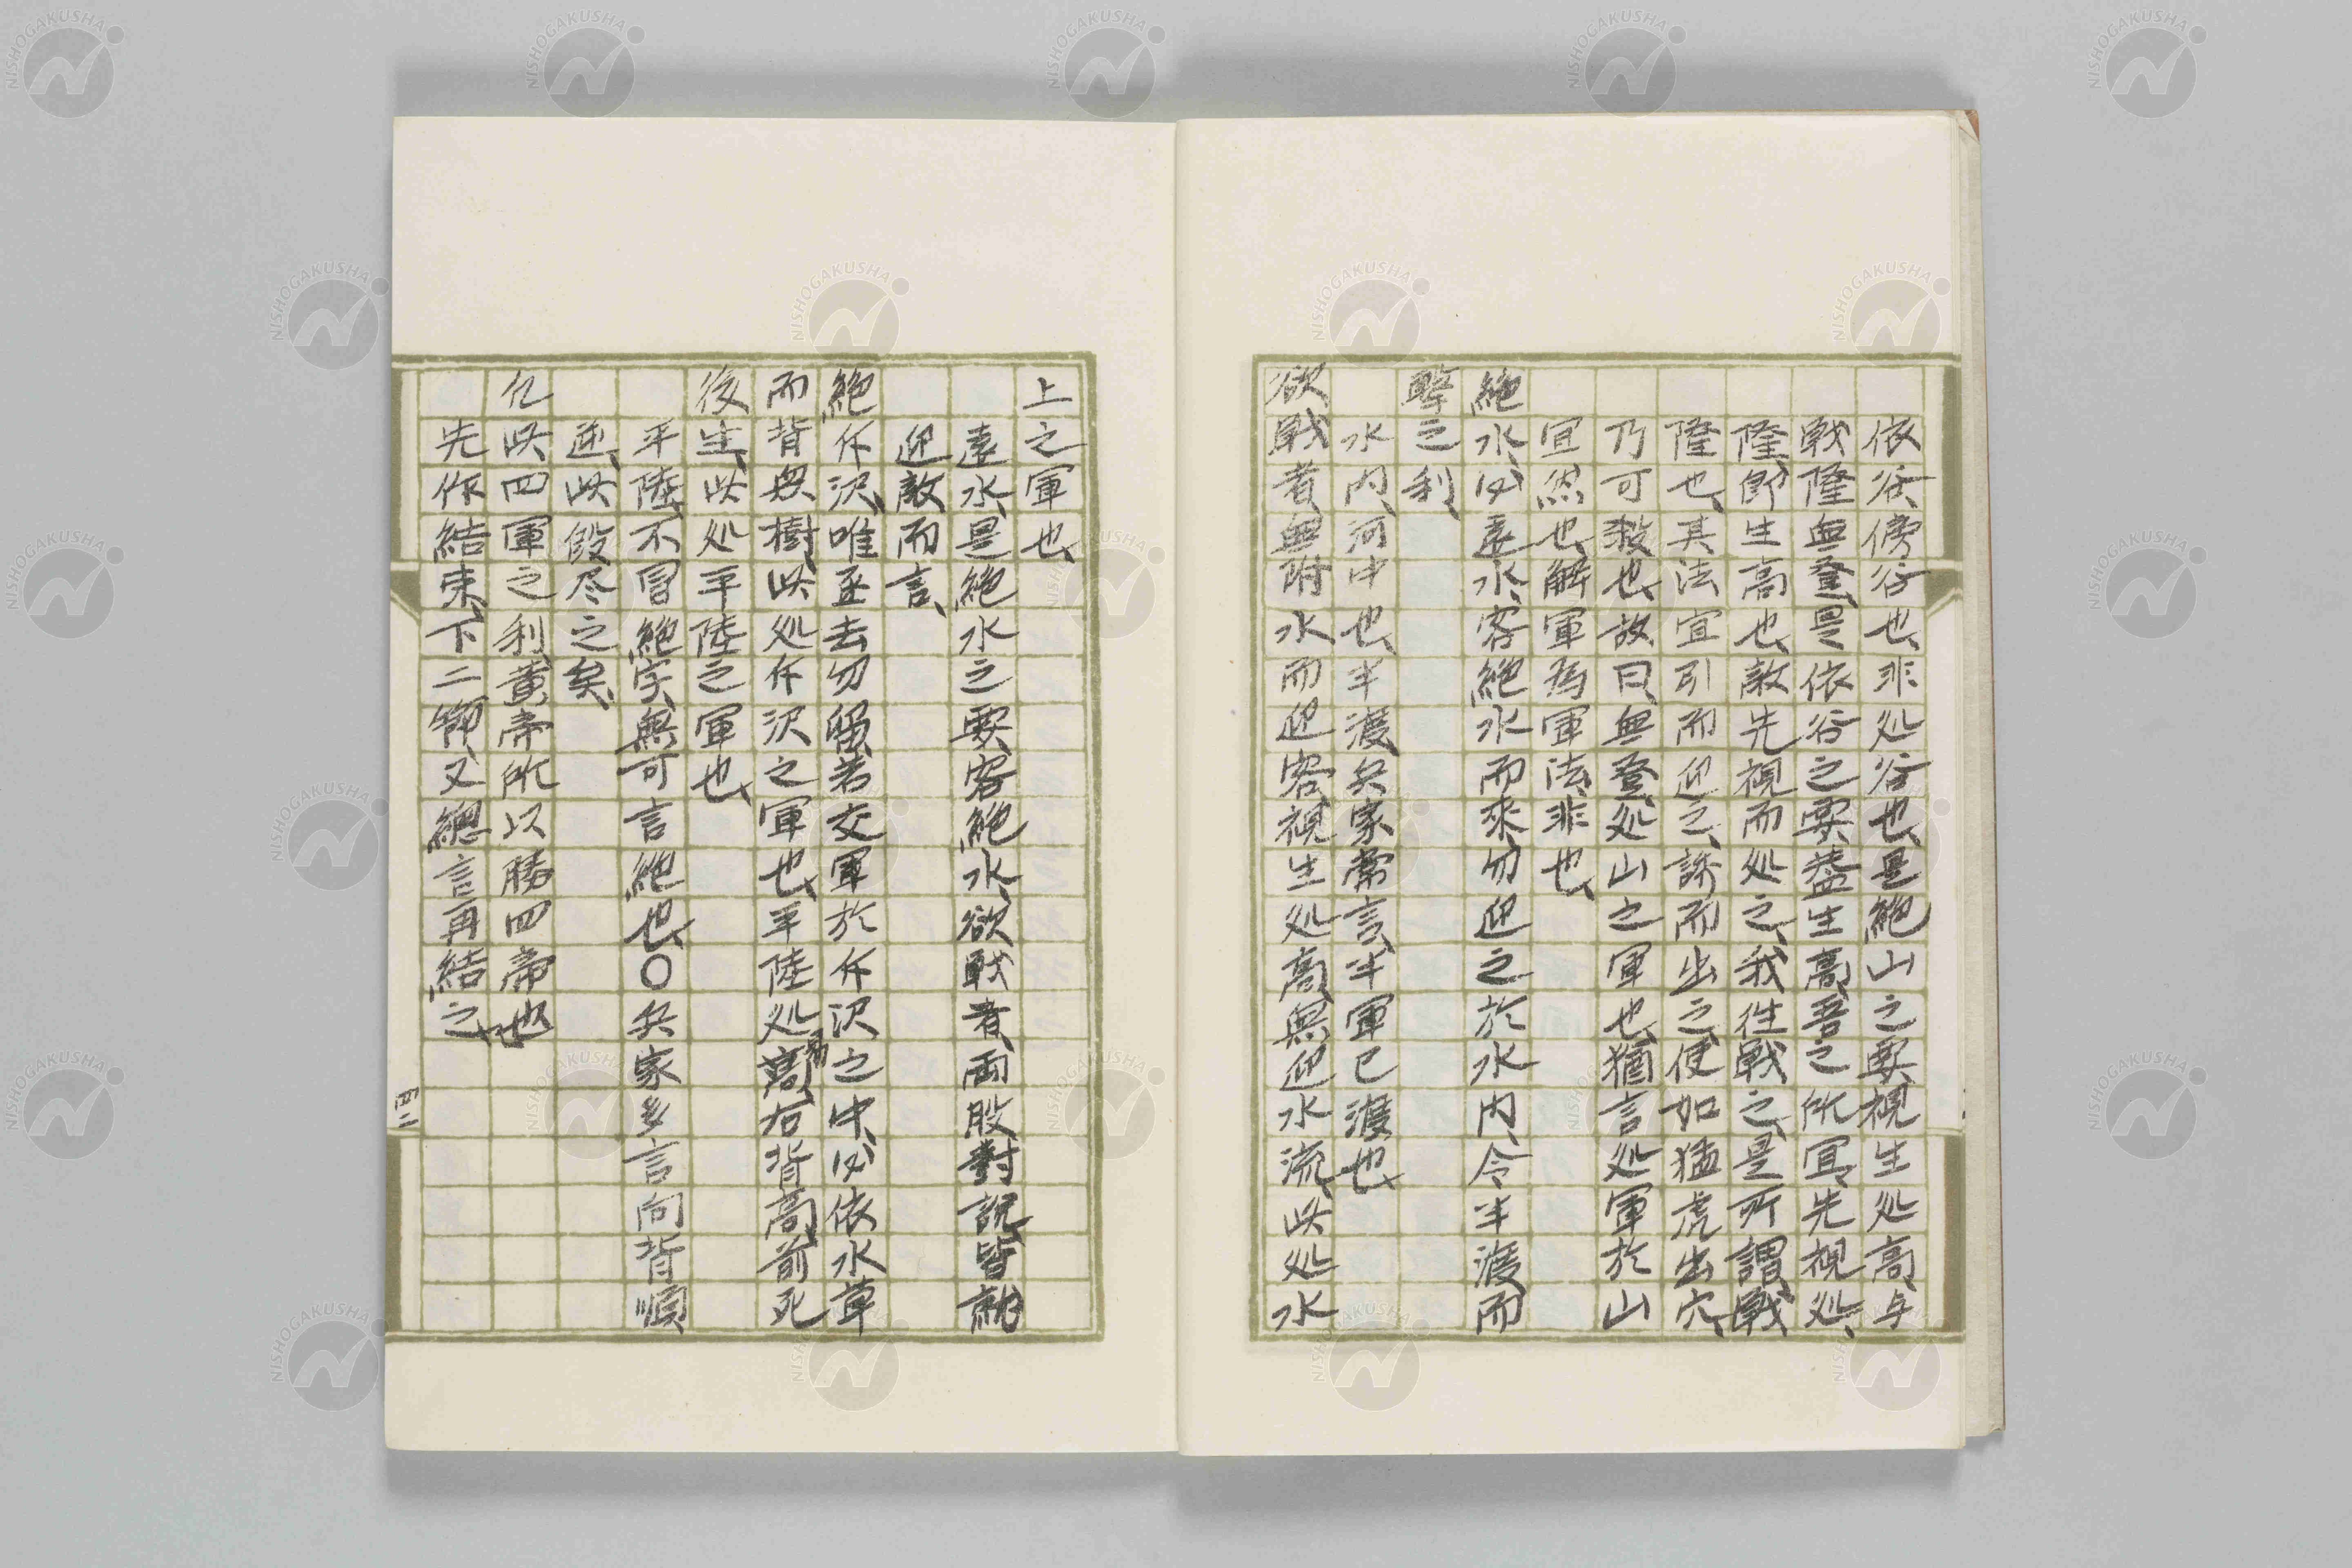 依谷、傍谷也、非処谷也、是絶山之要、視生処高、与
戦隆無登、是依谷之要、蓋生高、吾之所宜、先視処、
隆、即生高也、敵先視而処之、我往戦之、是所謂戦
隆也、其法宜引而迎之、誘而出之、使如猛虎出穴、
乃可殺也、故曰、無登、処山之軍也、猶言処軍於山
宜然也、解軍為軍法、非也、
絶水、必遠水、客絶水而来、勿迎之於水内、令半渡而
撃之利、
水内、河中也、半渡、兵家常言、半軍已渡也、
欲戦者、無附水而迎客、視生処高、無迎水流、此処水
上之軍也、
遠水、是絶水之要、客絶水、欲戦者、両股對説、皆就
迎敵而言、
絶斥沢、唯亟去勿留、若交軍於斥沢之中、必依水草
而背衆樹、此処斥沢之軍也、平陸処易、右背高、前死
後生、此処平陸之軍也、
平陸、不冒絶字、無可言絶也、〇兵家多言向背順
逆、此段尽之矣、
凡此四軍之利、黄帝所以勝四帝也、
先作結束、下二節、又總言再結之、
NISHOGAKUSHA